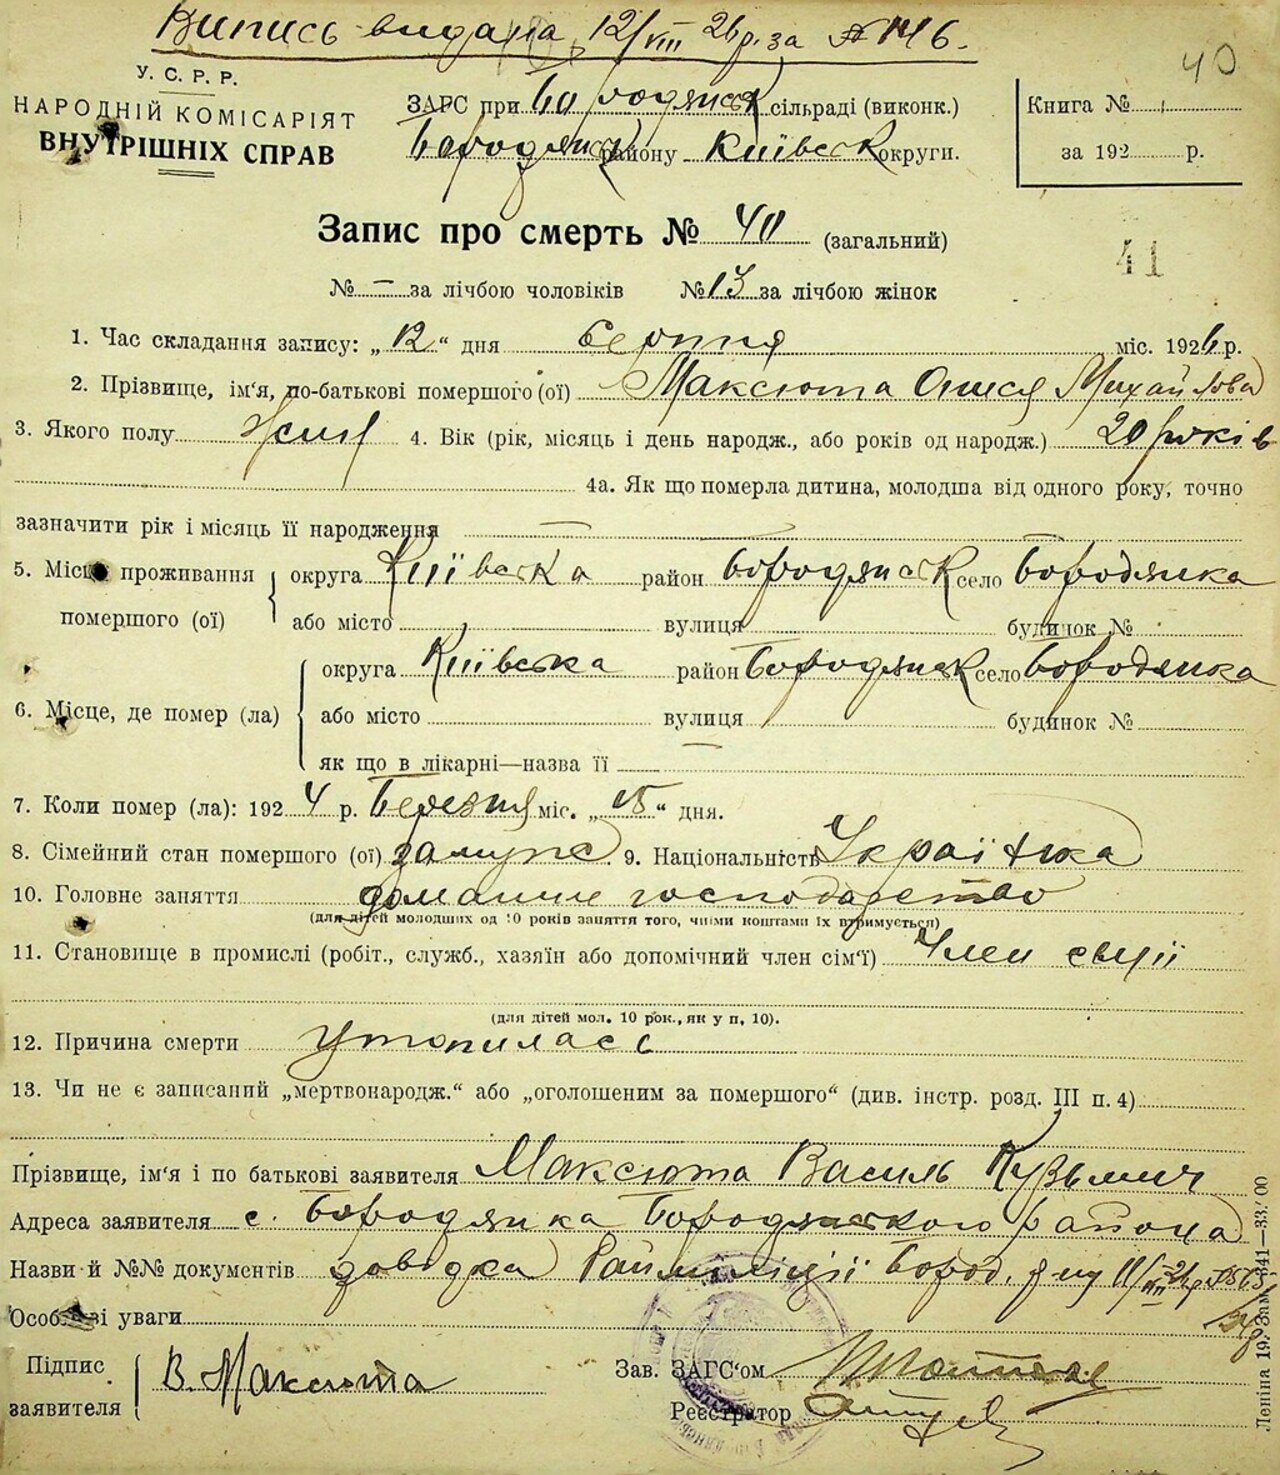 Випись видана 12/VIII 26 р. за № 1416.
40
У. С. Р. Р.
НАРОДНІЙ КОМІСАРІЯТ
ВНУТРІШНІХ СПРАВ
ЗАГС при Бородянськ сільраді (виконк.)
Бородянськ району Київськ округи.
Книга №
за 192 р.
Запис про смерть № 40 (загальний)
41
№ — за лічбою чоловіків № 13 за лічбою жінок
1. Час складання запису: „12“ дня Серпня міс. 1926 р.
2. Прізвище, ім'я, по-батькові помершого (ої) Максюта Михайлова
3. Якого полу 4. Вік (рік, місяць і день народж., або років од народж.) 20 років
4а. Як що померла дитина, молодша від одного року, точно
зазначити рік і місяць її народження —
5. Місце проживання помершого (ої) округа Київська район Бородянськ село Бородянка
або місто вулиця будинок №
6. Місце, де помер (ла) округа Київська район Бородянськ село Бородянка
або місто вулиця будинок №
як що в лікарні—назва її —
7. Коли помер (ла): 1924 р. Березня міс. „15“ дня.
8. Сімейний стан помершого (ої) замужня 9. Національність Українка
10. Головне заняття домашнє господарство
(для дітей молодших од 10 років заняття того, чиїми коштами їх втримується)
11. Становище в промислі (робіт., служб., хазяїн або допомічний член сім'ї) Член сем'ї
(для дітей мол. 10 рок., як у п, 10).
12. Причина смерти утопилась
13. Чи не є записаний „мертвонародж.“ або „оголошеним за помершого“ (див. інстр. розд. III п. 4)
Прізвище, ім'я і по батькові заявителя Максюта Василь Кузьмич
Адреса заявителя с. Бородянка Бородянського района
Назви й №№ документів довідка Райміліції Бород. р-ну 11/VIII 26 р. №
Особливі уваги
Підпис заявителя В. Максюта
Зав. ЗАГС'ом
Реєстратор
Леніна 19. Зам.